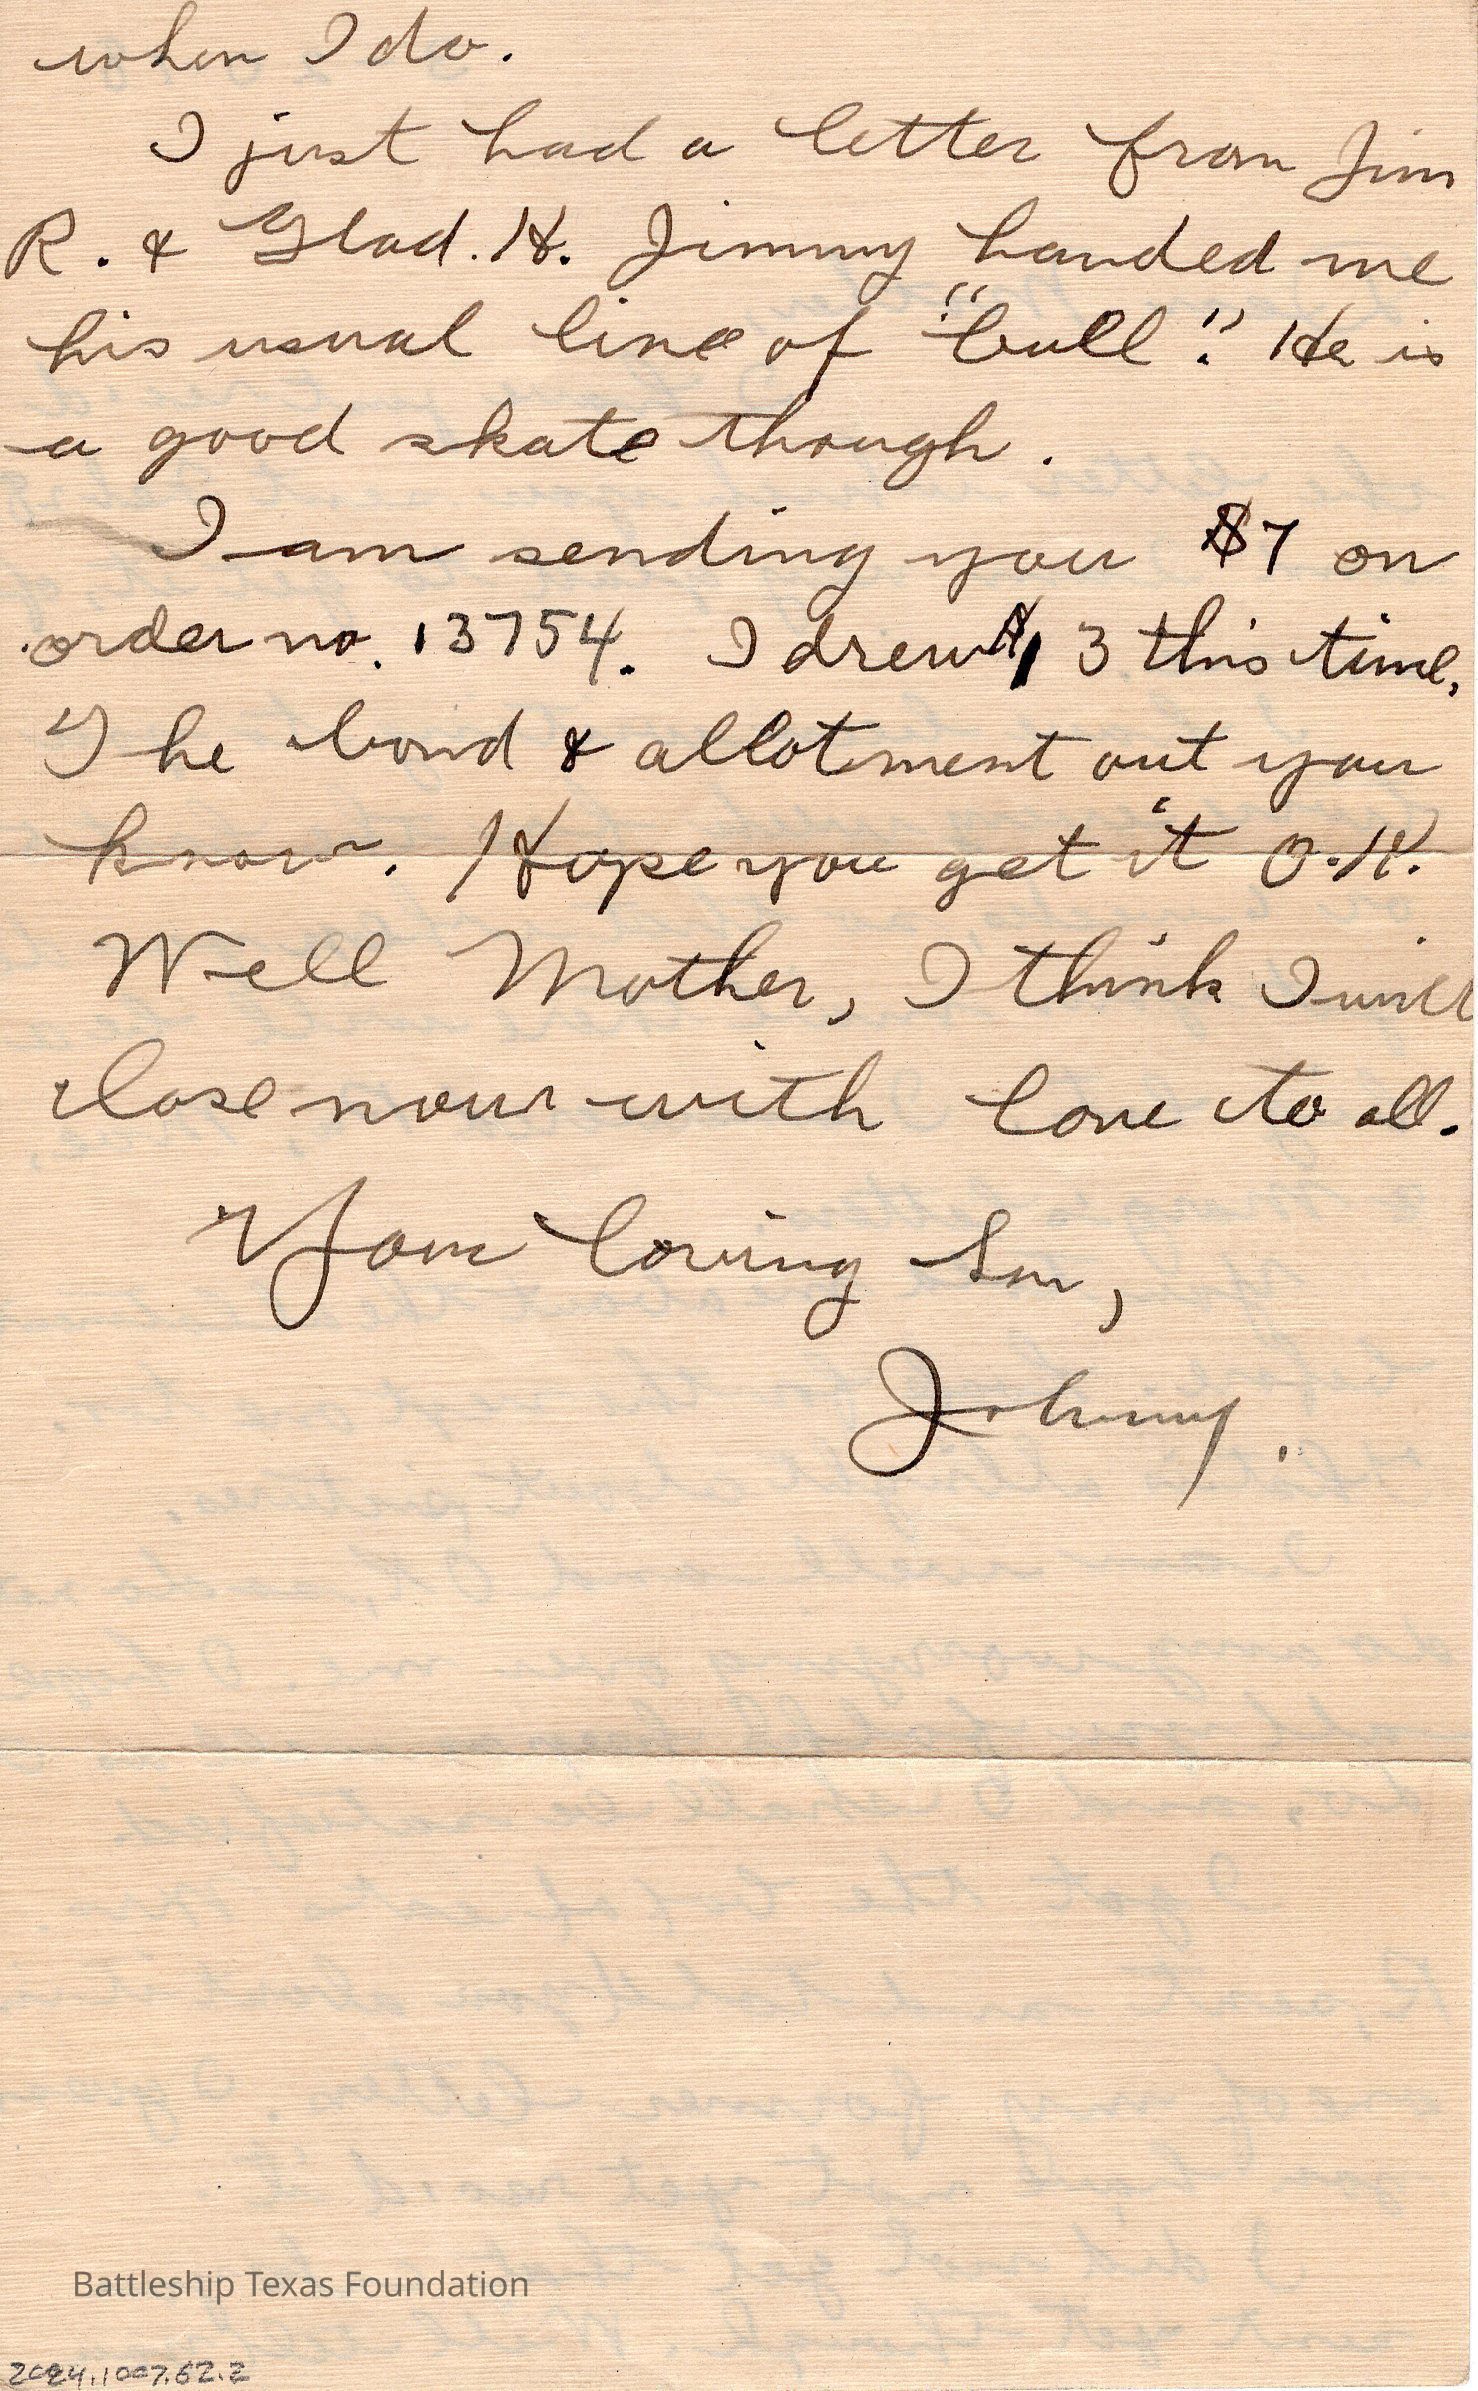 when I do.
I just had a letter from Jim
R. & Glad. H. Jimmy handed me
his usual line of "bull". He is
a good skate though.
I am sending you $7 on
order no. 13754. I drew $13 this time.
The bond & allotment out you
know. Hope you get it O.K.
Well Mother, I think I will
close now with love to all.
Your loving Son,
Johnny.
Battleship Texas Foundation
2024.1007.62.2